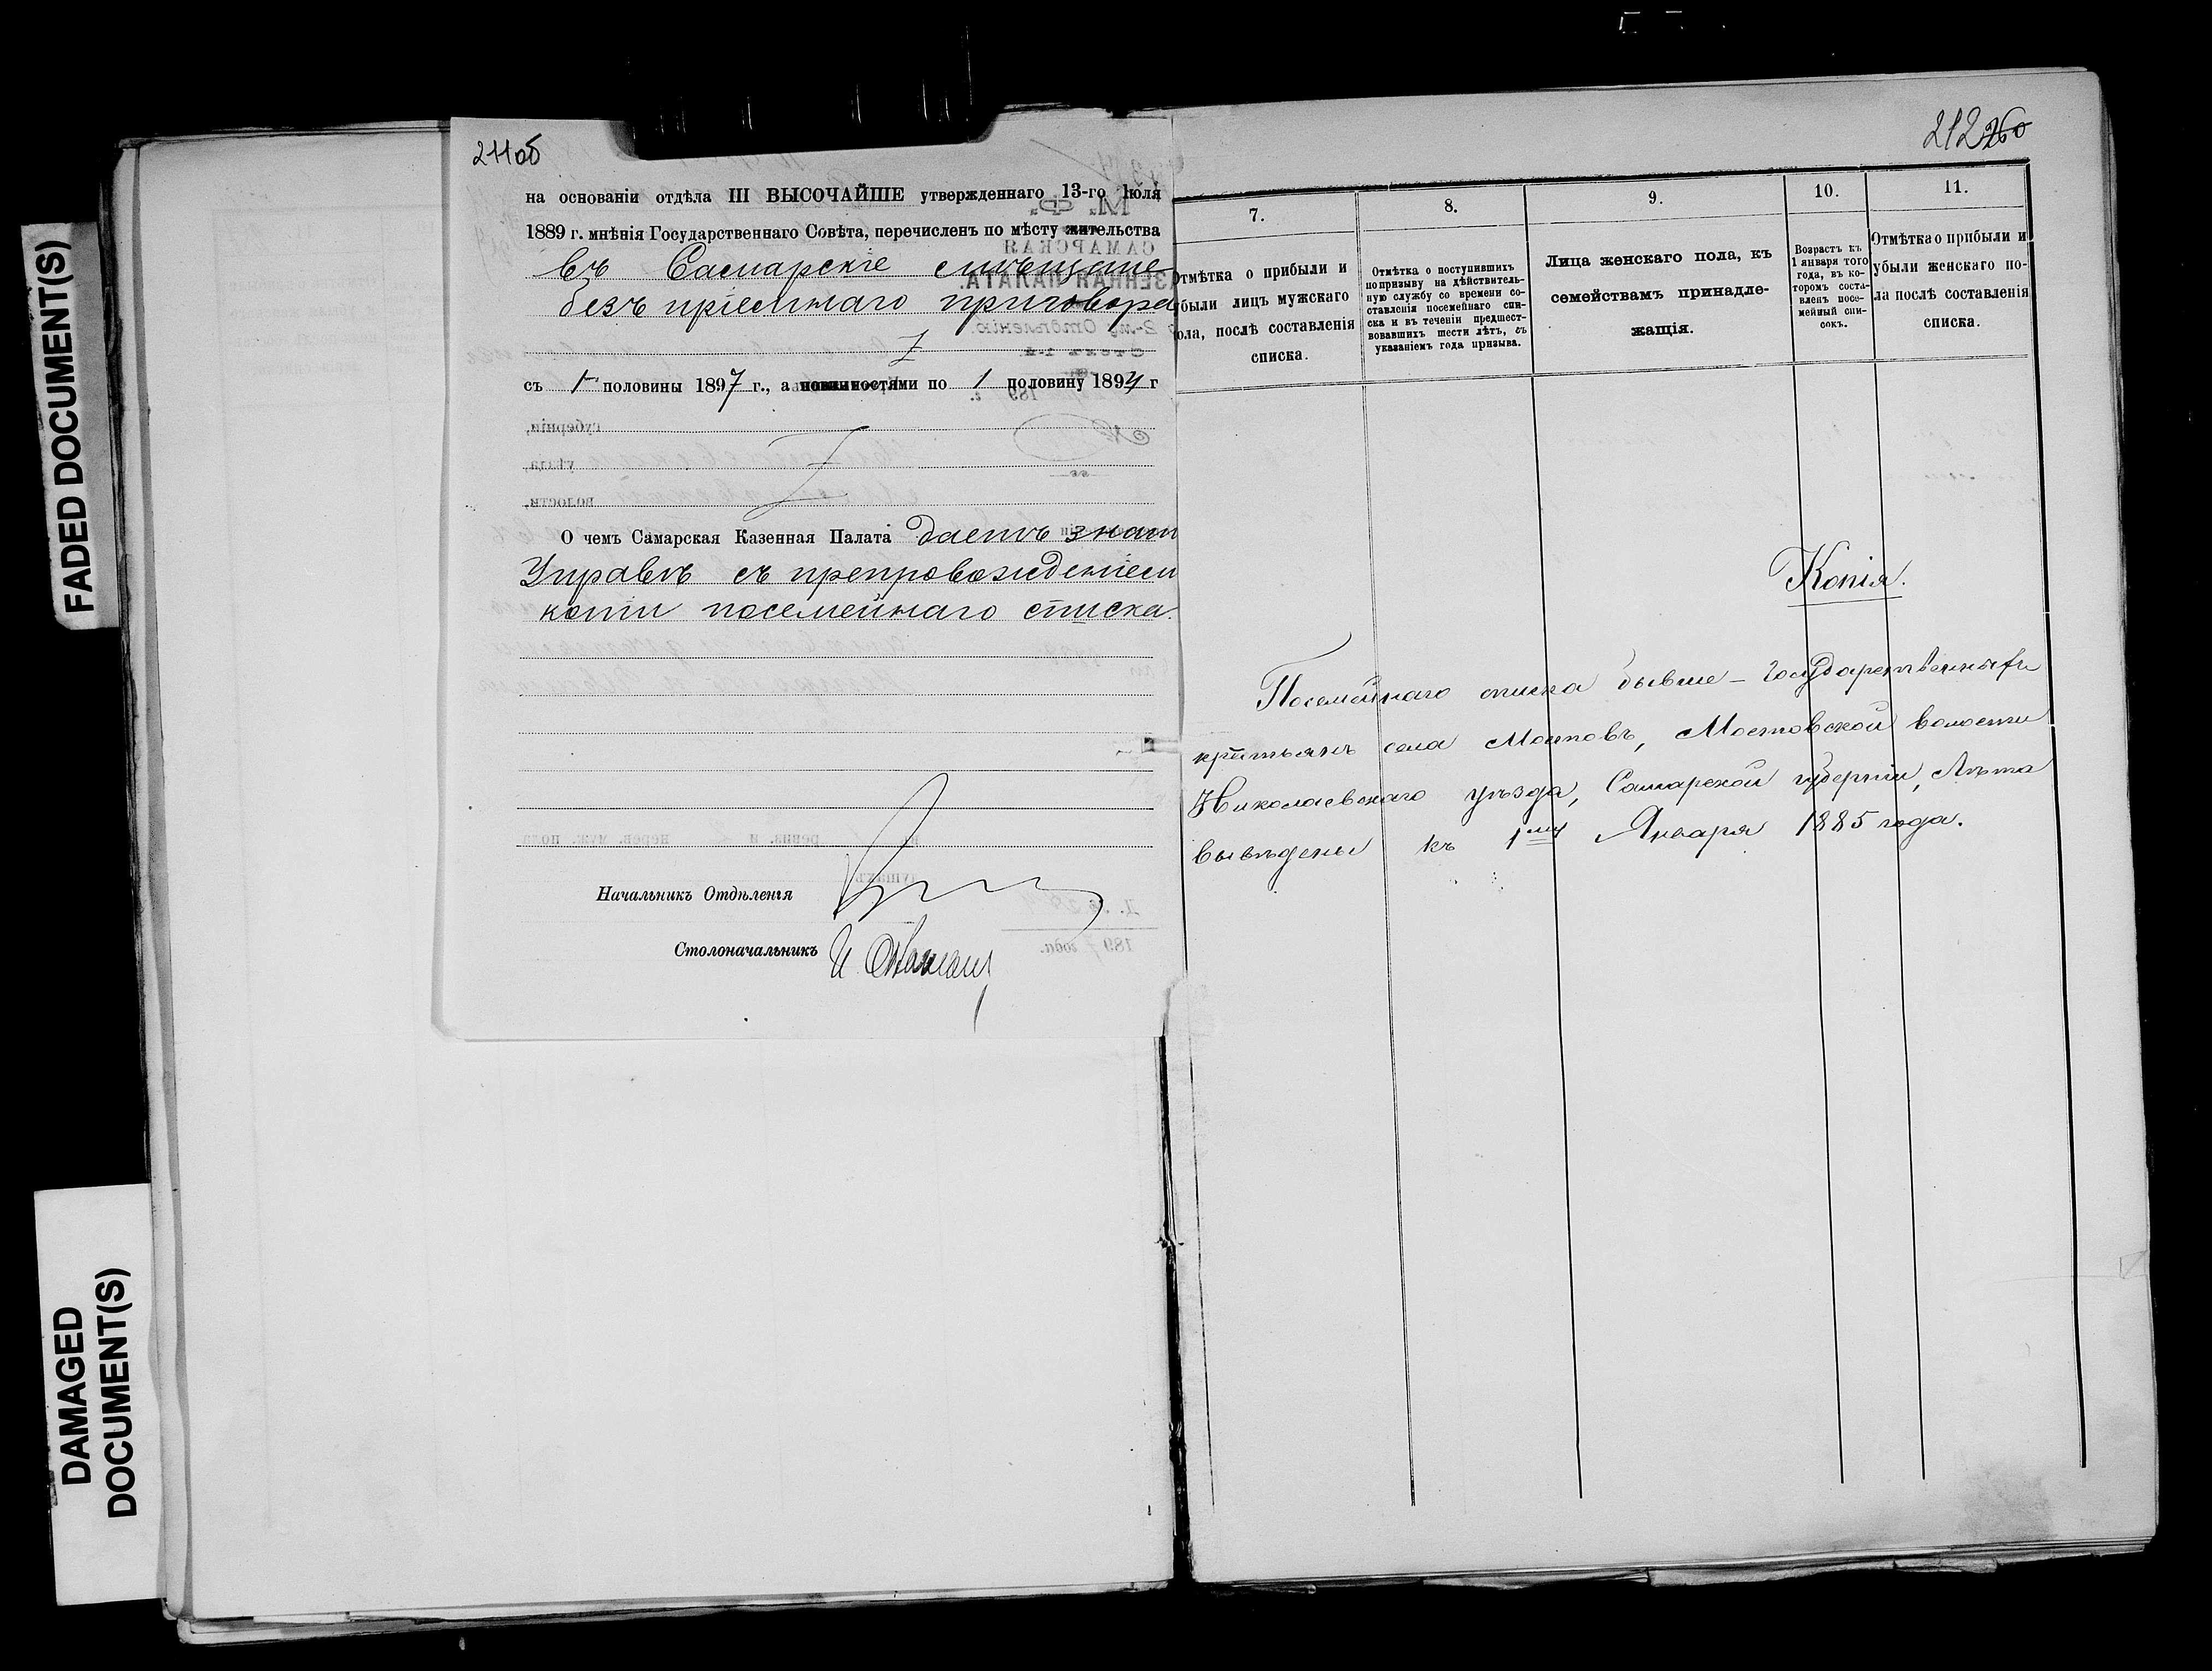 FADED DOCUMENT(S)
DAMAGED
DOCUMENT(S)
211об
на основаніи отдѣла III ВЫСОЧАЙШЕ утвержденнаго 13-го Іюля
1889 г. мнѣнія Государственнаго Совѣта, перечисленъ по мѣсту жительства
въ Самарскіе мѣщане
безъ пріемнаго приговора
съ 1 половины 1897 г., а повинностями по 1 половину 1897 г
О чемъ Самарская Казенная Палата даетъ знат
Управѣ съ препровожденіем
копіи посемейнаго списка.
Начальникъ Отдѣленія
Столоначальникъ И.
212 260
7.
8.
9.
10.
11.
Отмѣтка о прибыли и
были лицъ мужскаго
ола, послѣ составленія
списка.
Отмѣтка о поступившихъ
по призыву на дѣйствитель-
ную службу со времени со-
ставленія посемейнаго спи-
ска и въ теченіи предшест-
вовавшихъ шести лѣтъ, съ
указаніемъ года призыва.
Лица женскаго пола, къ
семействамъ принадле-
жащія.
Возрастъ къ
1 января того
года, въ ко-
торомъ соста-
вленъ посе-
мейный спи-
сокъ.
Отмѣтка о прибыли и
убыли женскаго по-
ла послѣ составленія
списка.
Копія.
Посемейнаго списка бывше-государственныхъ
крестьянъ села Мостовъ, Мостовской волости
Николаевскаго уѣзда, Самарской губерніи, Лѣта
выведены къ 1му Января 1885 года.